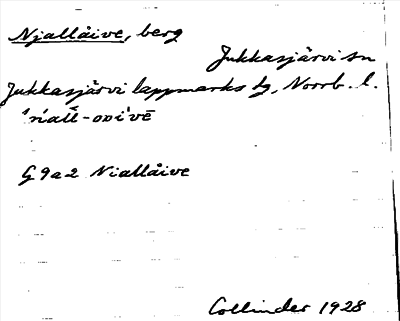 Njallåive, berg
Jukkasjärvi sn
Jukkasjärvi lappmarks tg, Norrb. l.
G9a2 Niallåive
Collinder 1928